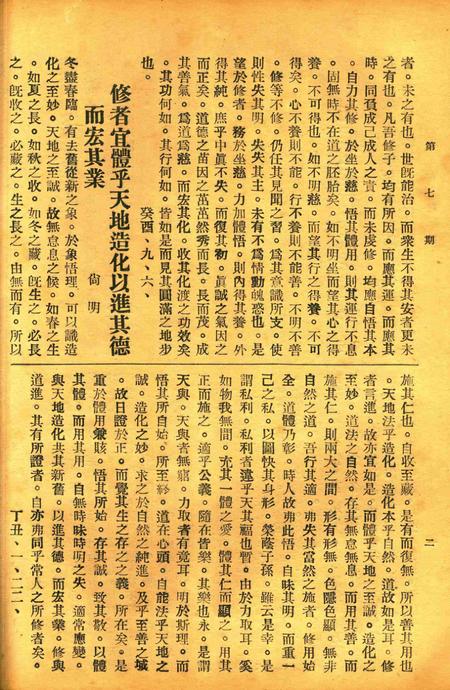 第七期
二
者。未之有也。世既能治。而衆生不得其安者更未
之有也。凡吾修子。均有所因。而應其運。而應其
時。同負成己成人之責。而未虔修。均應自悟其本
。自力其修。於坐於慈。悟其體用。則其運行不息
。固無時不在道之胚胎矣。如不明坐而望其心之得
養。不可得也。如不明慈。而望其行之得養。不可
得矣。心不養則不能。行不養則不能善。不明不善
。修等不修。仍任其見聞之習。爲其意識所支。使
則性失其明。失失其主。未有不爲情動魄惑也。是
望於修者。務於坐慈。力加體悟。則內得其養。外
得其純。庶乎中眞不失。而復其初。眞誠之氣成。因
而正矣。道德之苗因之茁然秀而長。長而茂。成之
其善氣。爲道爲慈。而宏其化。收其化渡之功效矣
。其功何如。其行何如。皆如是而見其圓滿之地步
也。
癸酉、九、六、
修者宜體乎天地造化以進其德
而宏其業
尙明
冬盡春臨。有去舊從新之象。於象悟理。可以識造
化之至妙。天地之至誠。故無息之候。如春之生
。如夏之長。如秋之收。如冬之藏。既生之。必長
之。既收之。必藏之。生之長之。由無而有。所以
施其仁也。自收至藏。是有而復無。所以善其用也
。天地法乎造化。造化本乎自然。道故如是耳。修
者言進。故亦宜如是。而體乎天地之至誠。造化之
至妙。道法之自然。存其無怠無息。而用其善。而
施其仁。則兩大之間。形有形無。色隱色顯。無非
自然之道。吾行其適。弗失其當然之施者。修用始
全。道體乃彰。時人故弗此悟。自昧其明。而重一
己之私。以圖快其身形。榮蔭子孫。雖云是幸。是
謂私利。私利者違乎天其福也暫。由於力取耳。奚
如物我無間。充其一體之愛。體其仁而顯之。用其
正而施之。適乎公義。隨在皆樂。其樂也永。是謂
天與。天與者無竆。力取者有竟耳。明於斯理。而
悟其所自始。所至終。道在心頭。自能法乎天地之
誠。造化之妙。求之於自然之純進。及乎至善之域
。故日證於正。而覺其生之存之之義。所在矣。是
重於體用兼賅。悟其所始。存其誠。致其敬。以體
其體。而用其用。自無時昧時明之失。適常應變。
與天地造化共其新舊。以進其德。而宏其業。修與
道進。其有所證者。自亦弗同乎常人之所修者矣。
丁丑、一、二二、